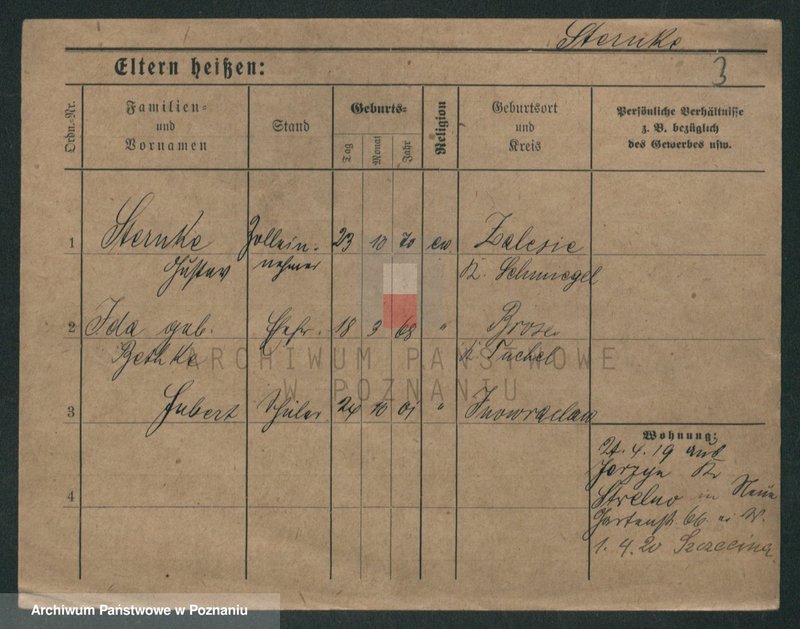 Sternke
3
Eltern heißen:
Ordn.-Nr.
Familien- und Vornamen
Stand
Geburts-
Tag
Monat
Jahr
Religion
Geburtsort und Kreis
Persönliche Verhältnisse z. B. bezüglich des Gewerbes usw.
1 Sternke Zollein- 23 10 70 ev. Zalesie
Gustav nehmer Kr. Schmiegel
2 Ida geb. Ehefr. 18 3 68 " 
Bethke Kr. Tuchel
3 Hubert Schüler 24 10 01 " Inowrazlaw
Wohnung:
21.4.19 aus
Jerzyn Kr
Strelno in Neue
Gartenstr. 66
4
1.4.20 Szczecina
ARCHIWUM PAŃSTWOWE
W POZNANIU
Archiwum Państwowe w Poznaniu